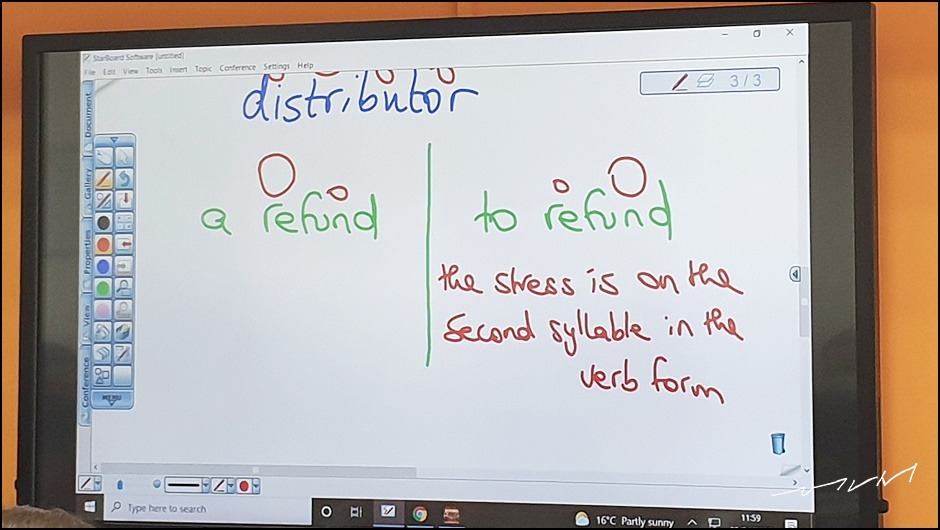 StarBoard Software [untitled]
File Edit View Tools Insert Topic Conference Settings Help
3/3
distributor
a refund
to refund
the stress is on the
second syllable in the
verb form
Document
Gallery
Properties
View
Conference
MENU
Type here to search
16°C Partly sunny
11:59